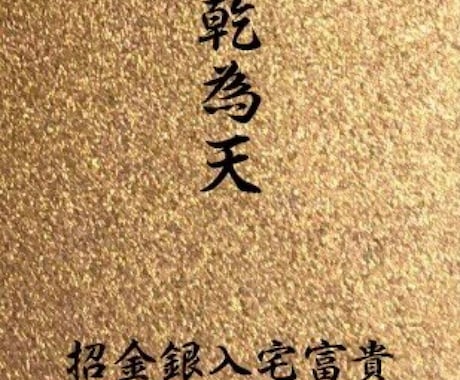 乾為天
招金銀入宅富貴